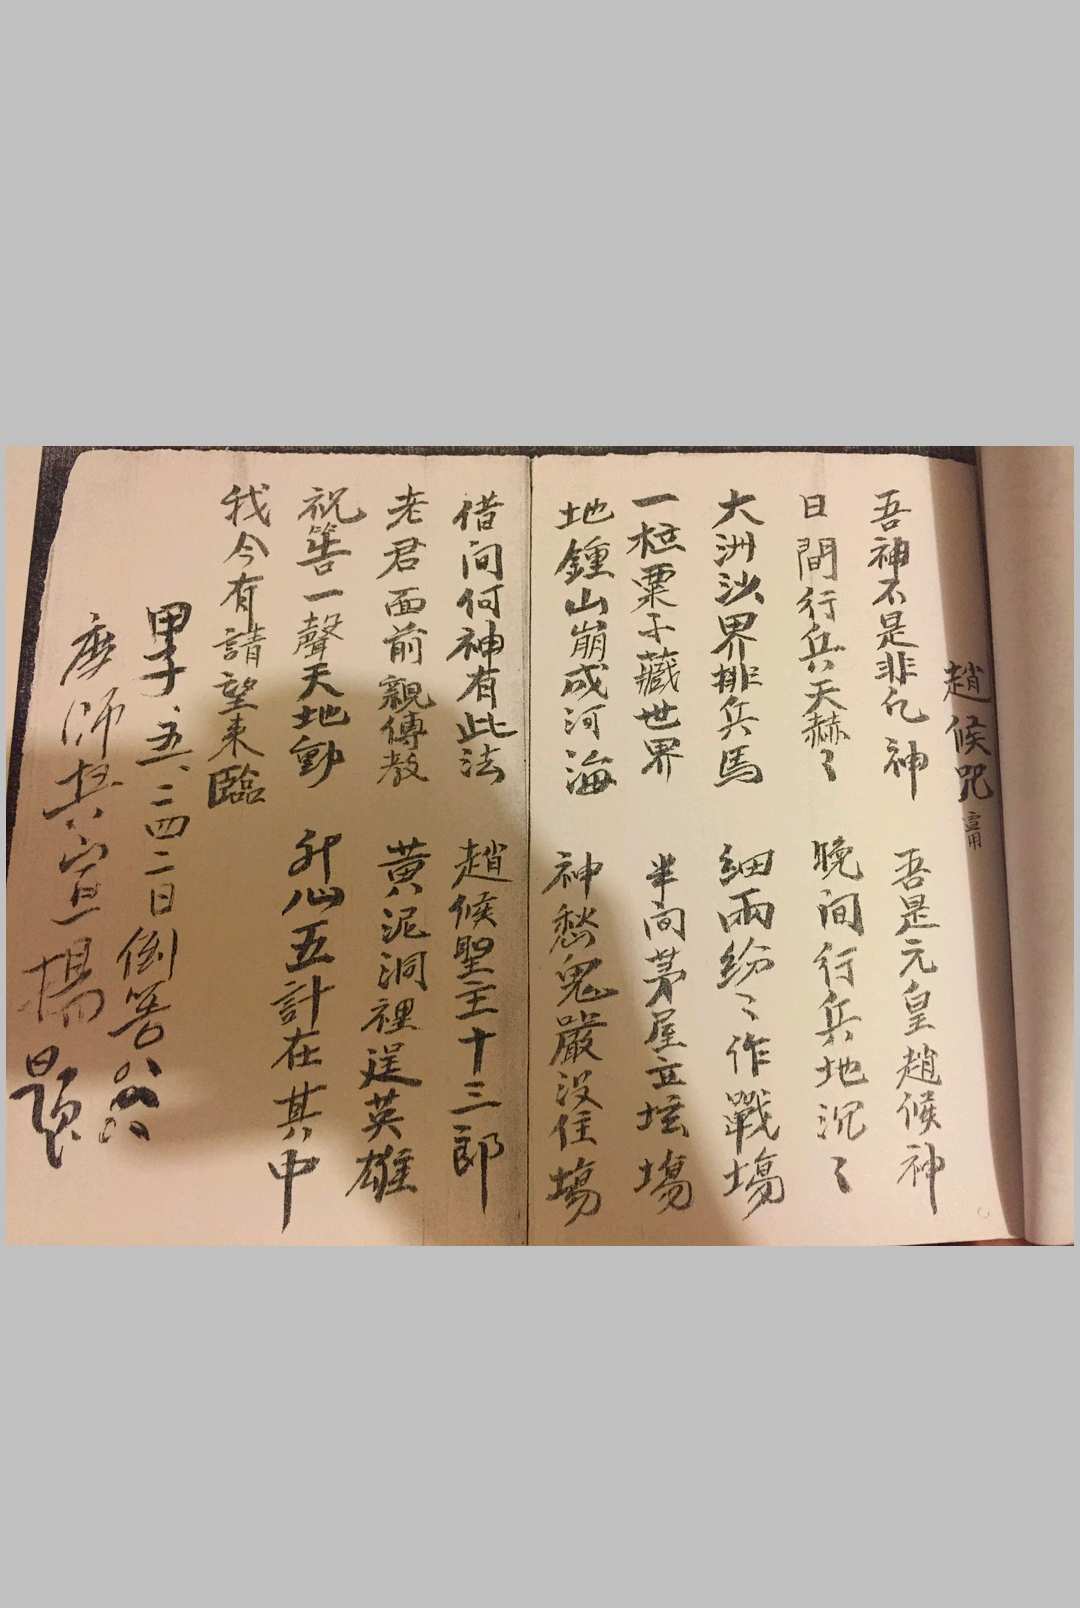 趙候咒
吾神不是非凡神 吾是元皇趙候神
日間行兵天赫〻 晚間行兵地沉〻
大洲沙界排兵馬 細雨紛〻作戰塲
一粒粟子藏世界 半间茅屋立坛塲
地鍾山崩成河海 神愁鬼嚴没住塲
借问何神有此法 趙候聖主十三郎
老君面前親傳教 黄泥洞裡逞英雄
祝筶一聲天地動 升心五計在其中
我今有請望來臨
甲子、五、二四二日倒筶
師 宣楊題